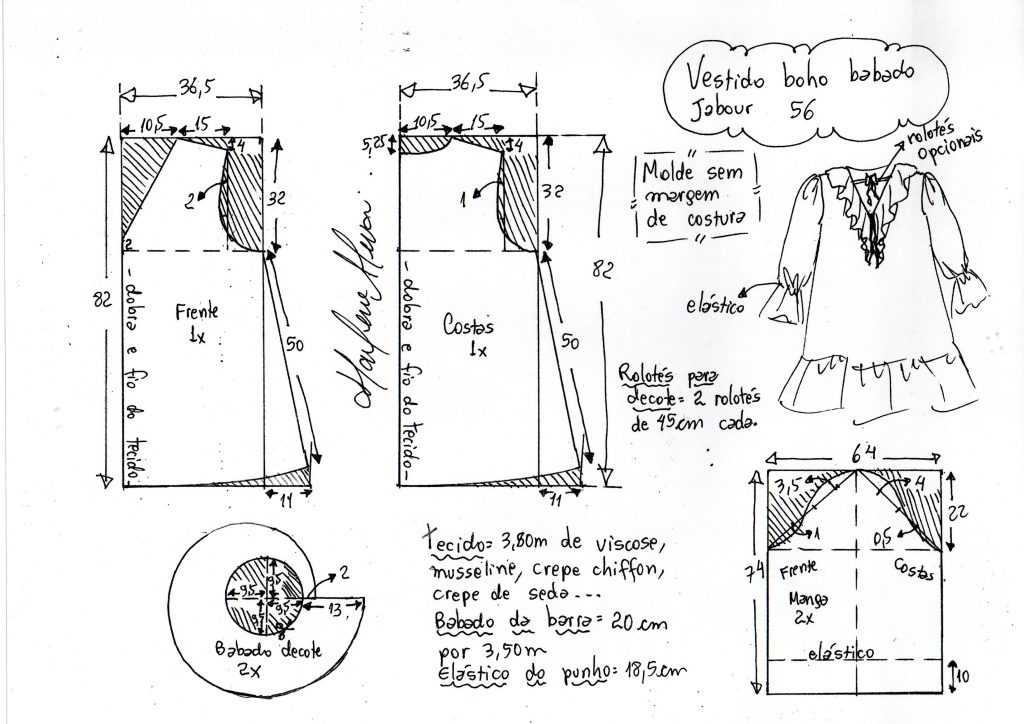 Vestido boho babado
Jabour 56
rolotés
opcionais
Molde sem
margem
de costura
elástico
Rolotés para
decote = 2 rolotés
de 45cm cada.
36,5
10,5
15
4
32
2
2
82
- dobra e fio do tecido -
Frente
1x
50
11
36,5
10,5
15
5,25
4
32
1
82
- dobra e fio do tecido -
Costas
1x
50
11
Marlene Mukai
9,5
9,5
9,5
9,5
2
13
Babado decote
2x
tecido = 3,80m de viscose,
musseline, crepe chiffon,
crepe de seda...
Babado da barra = 20 cm
por 3,50m
Elástico do punho = 18,5cm
64
3,5
4
22
1
0,5
74
Frente
Costas
Manga
2x
elástico
10